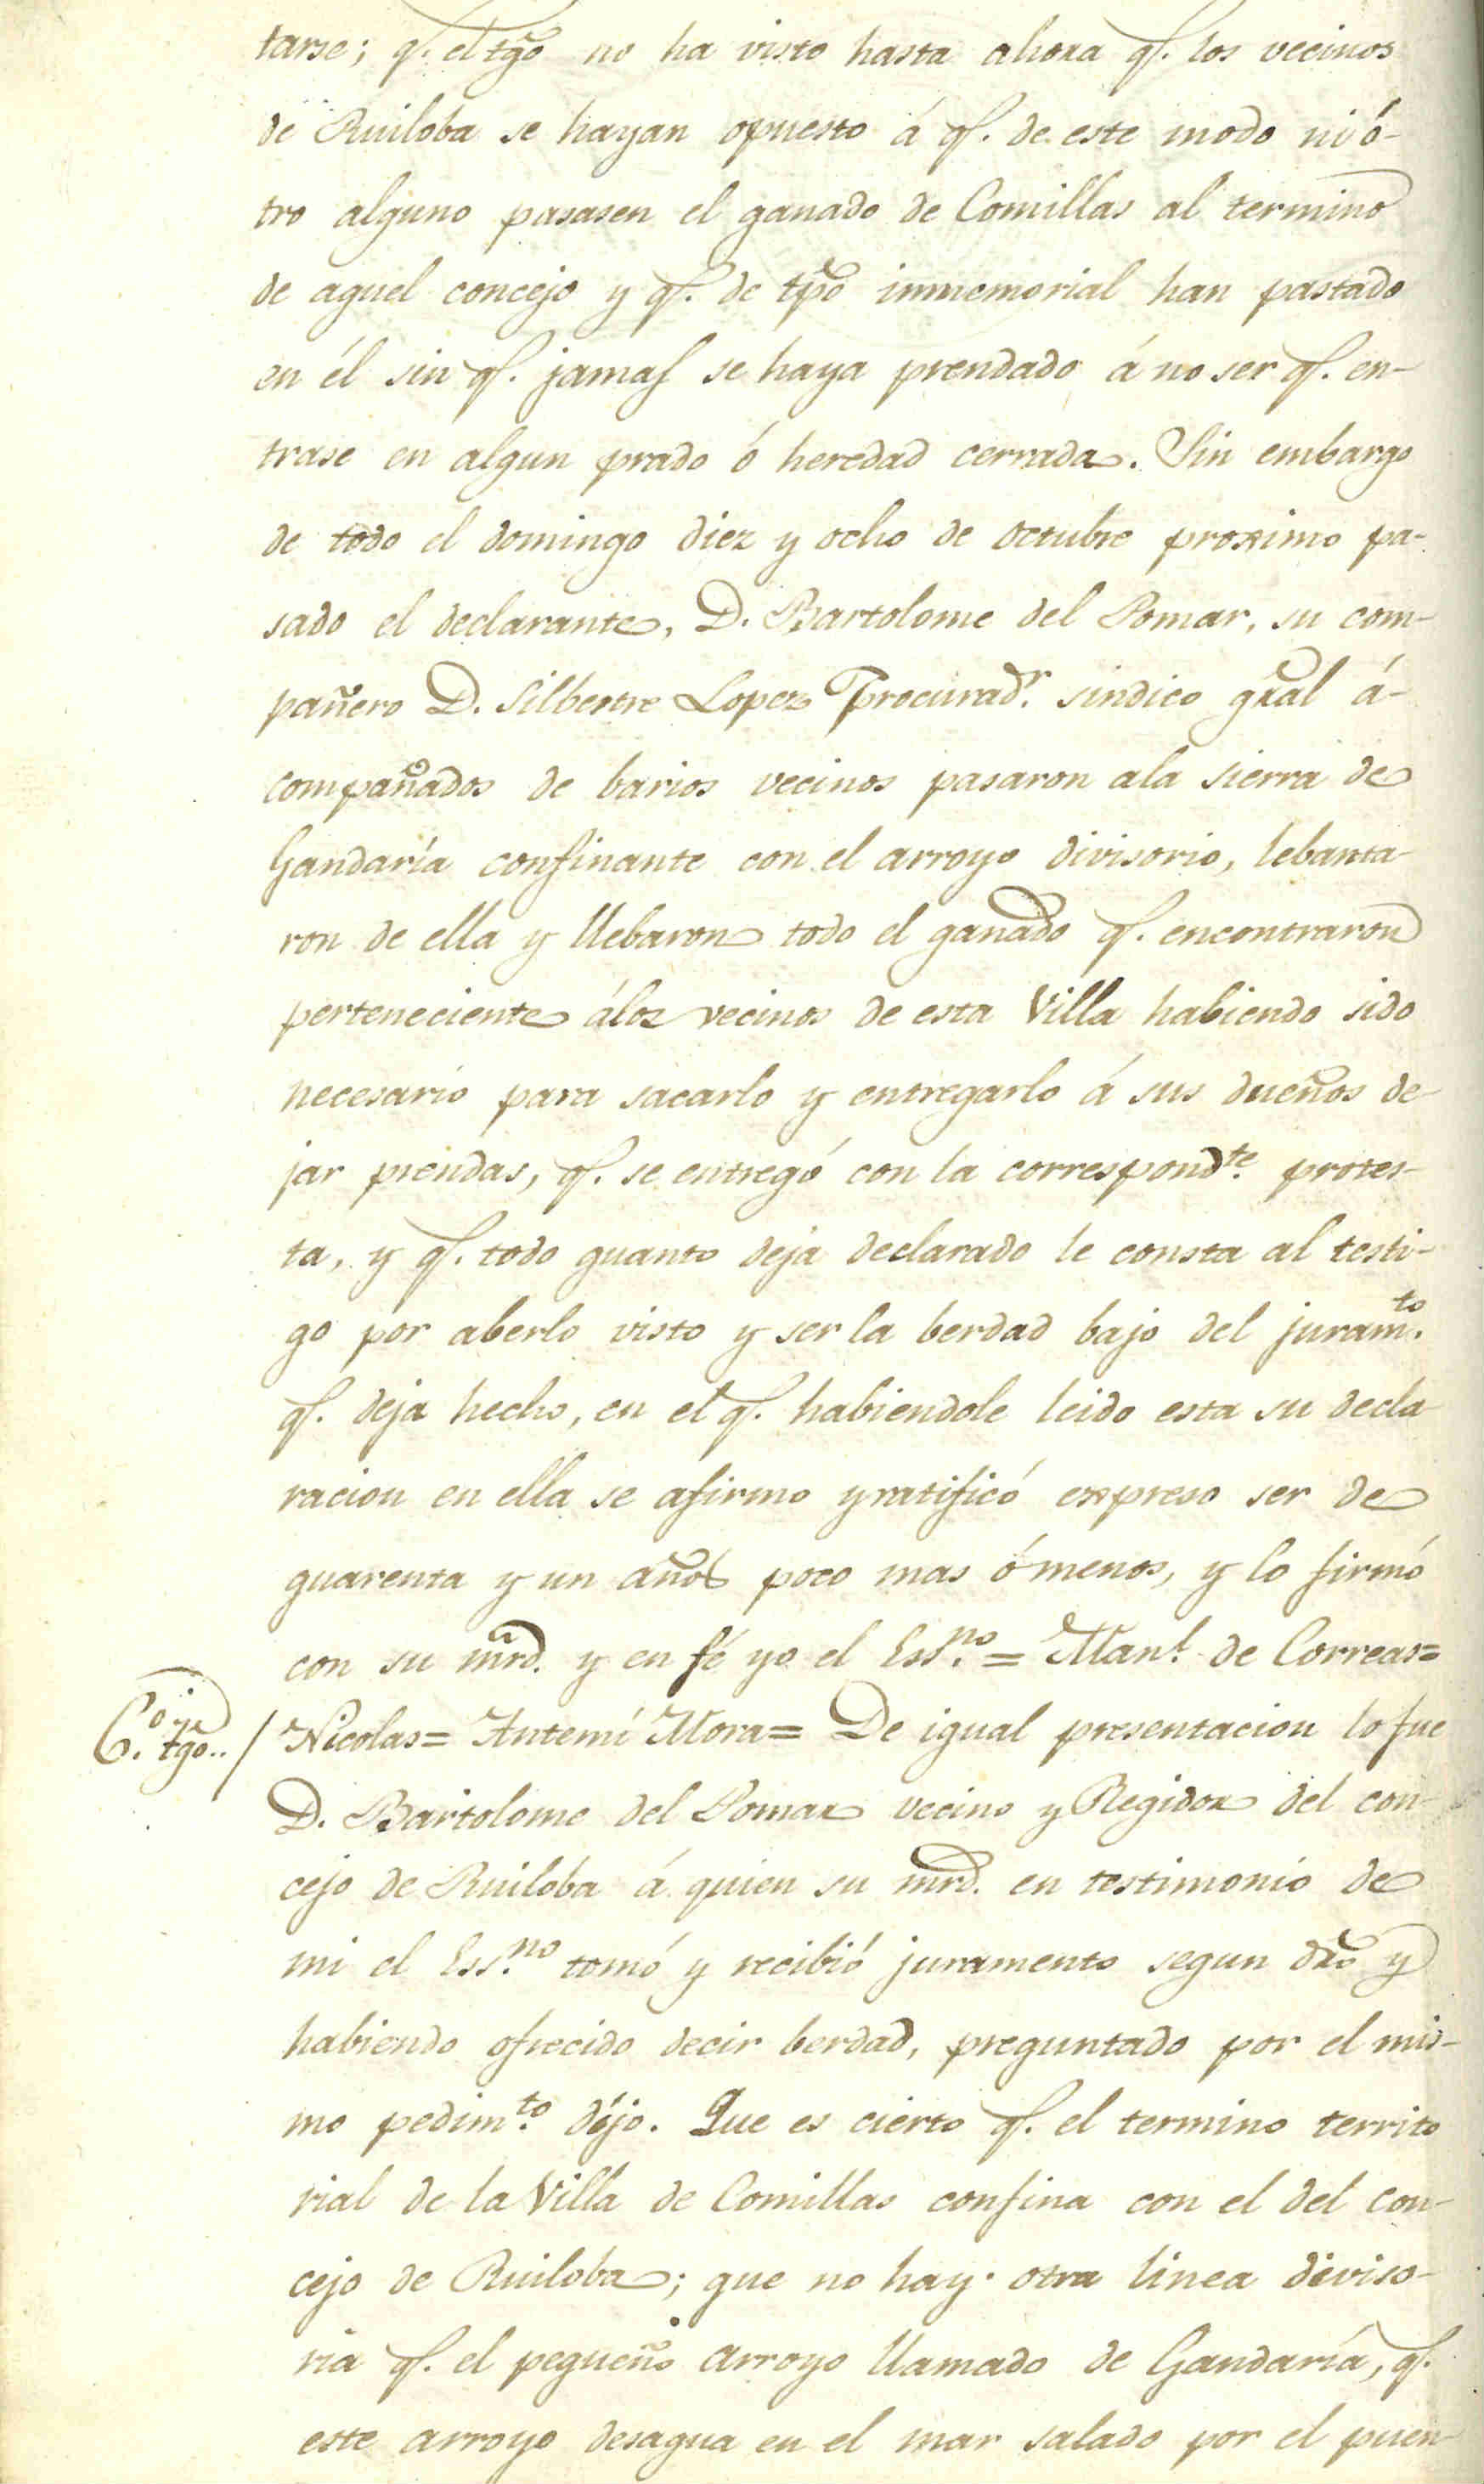 tarse; q.ᵉ el tgõ no ha visto hasta ahora q.ᵉ los vecinos
de Ruiloba se hayan opuesto á q.ᵉ de este modo ni ó-
tro alguno pasasen el ganado de Comillas al termino
de aquel concejo y q.ᵉ de tpõ inmemorial han pastado
en él sin q.ᵉ jamas se haya prendado á no ser q.ᵉ en-
trase en algun prado ó heredad cerrada. Sin embargo
de todo el domingo diez y ocho de octubre proximo pa-
sado el declarante, D. Bartolome del Pomar, su com-
pañero D. Silbestre Lopez Procurad.ʳ sindico grãl á-
compañados de barios vecinos pasaron ala sierra de
Gandaría confinante con el arroyo divisorio, lebanta-
ron de ella y llebaron todo el ganado q.ᵉ encontraron
perteneciente álos vecinos de esta Villa habiendo sido
necesario para sacarlo y entregarlo á sus dueños de-
jar prendas, q.ᵉ se entregó con la correspond.ᵗᵉ protes-
ta, y q.ᵉ todo quanto deja declarado le consta al testi-
go por aberlo visto y ser la berdad bajo del juram.ᵗᵒ
q.ᵉ deja hecho, en el q.ᵉ habiendole leido esta su decla
racion en ella se afirmo y ratificó expreso ser de
quarenta y un años poco mas ó menos, y lo firmó
con su mrd̃. y en fé yo el Ess.ⁿᵒ = Man.ˡ de Correas=
6.º tgõ.. / Nicolas= Antemí Mora= De igual presentacion lo fue
D. Bartolome del Pomar vecino y Regidor del con-
cejo de Ruiloba á quien su mrd̃. en testimonio de
mi el Ess.ⁿᵒ tomó y recibió juramento segun drõ y
habiendo ofrecido decir berdad, preguntado por el mis-
mo pedim.ᵗᵒ díjo. Que es cierto q.ᵉ el termino territo
rial de la Villa de Comillas confina con el del con-
cejo de Ruiloba; que no hay otra linea diviso-
ria q.ᵉ el pequeño arroyo llamado de Gandaría, q.ᵉ
este arroyo desagua en el mar salado por el puen-